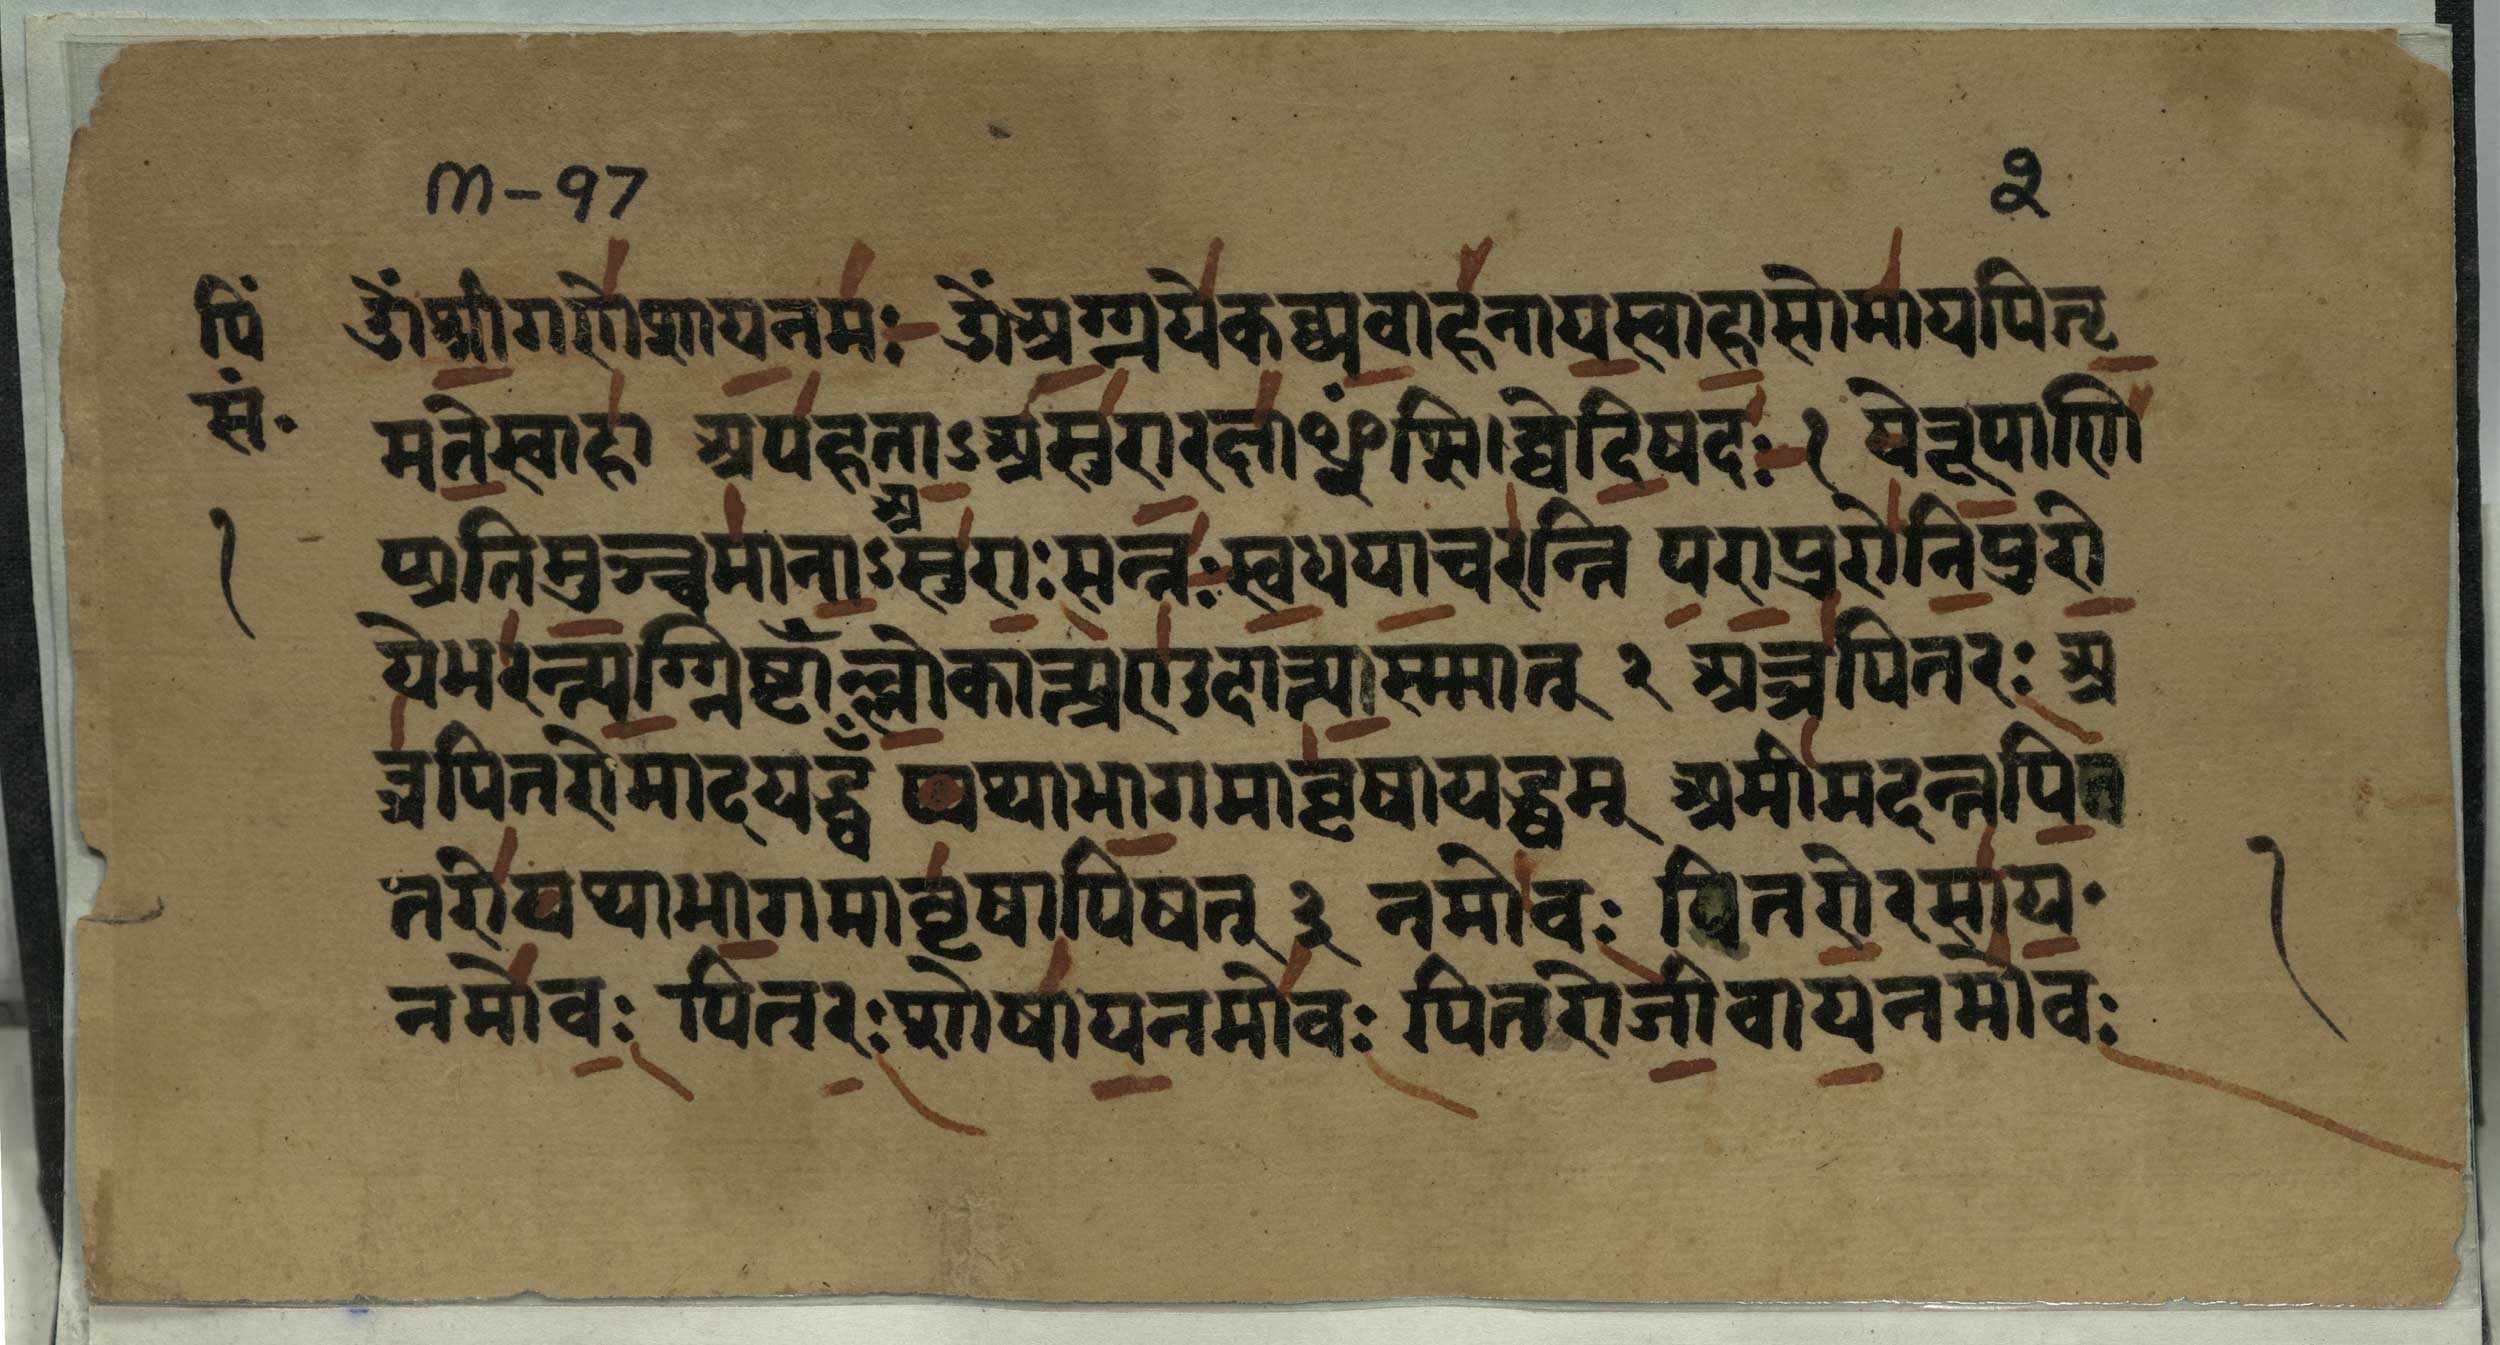 m-97
२
पिं
सं॰
१
ॐश्रीगणेशायनमः ॐअग्ग्नयेकव्यवाहनायस्वाहासोमायपितृ
मतेस्वाहा अपहताऽअसुरारक्षाᳪंसिव्वेदिषदः १ येरूपाणि
प्रतिमुञ्चमानाऽअसुराःसन्तःस्वधयाचरन्ति परापुरोनिपुरो
येभरन्त्यग्ग्निष्टाँल्लोकात्प्रणुदात्यस्मात् २ अत्रपितरः अ
त्रपितरोमादयद्ध्वँ यथाभागमावृषायद्ध्वम् अमीमदन्तपित
तरोयथाभागमावृषायिषत् ३ नमोवः पितरोरसाय॰
नमोवः पितरःशोषायनमोवः पितरोजीवायनमोवः
१